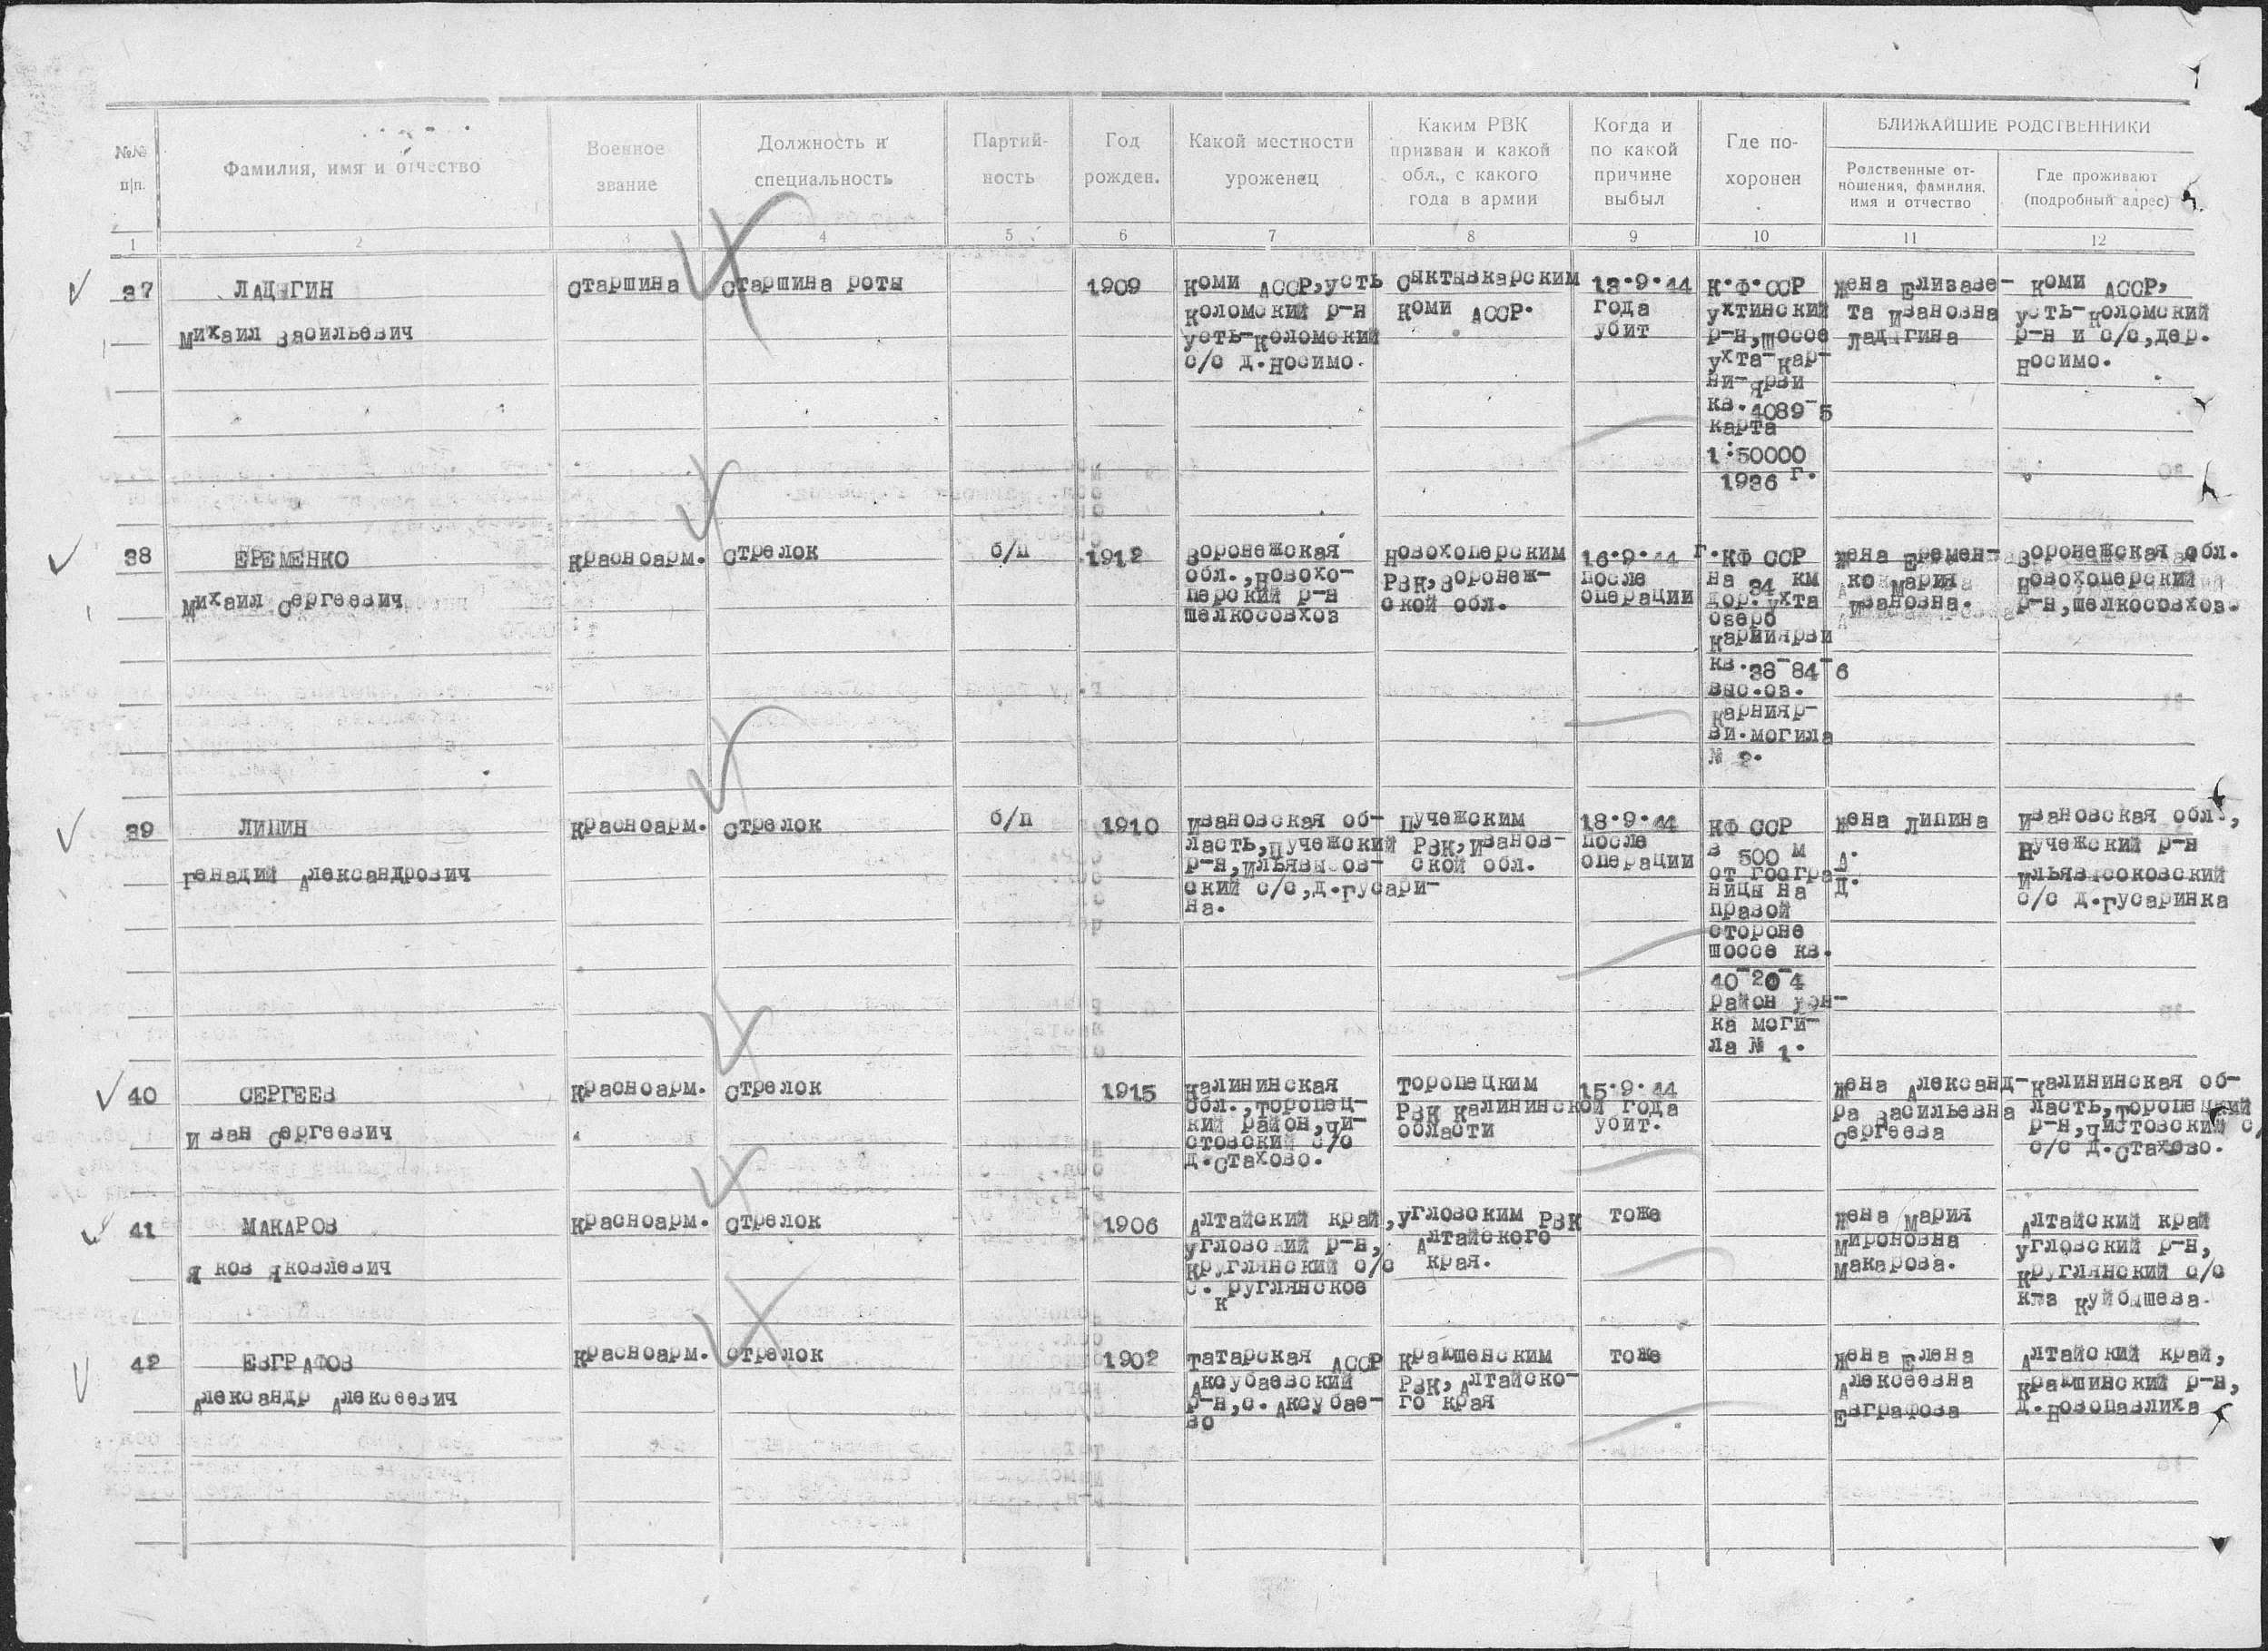 №№ п/п.
Фамилия, имя и отчество
Военное звание
Должность и специальность
Партий-
ность
Год рожден.
Какой местности уроженец
Каким РВК
призван и какой
обл., с какого
года в армии
Когда и
по какой
причине
выбыл
Где по-
хоронен
БЛИЖАЙШИЕ РОДСТВЕННИКИ
Родственные от-
ношения, фамилия,
имя и отчество
Где проживают
(подробный адрес)
1 2 3 4 5 6 7 8 9 10 11 12
37
ЛАДЫГИН
Михаил Васильевич
Старшина
Старшина роты
1909
Коми АССР,усть
Коломский р-н
усть-Коломский
с/с д.Носимо.
Сыктывкарским
Коми АССР.
13.9.44
года
убит
К.Ф.ССР
Ухтинский
р-н,шоссе
Ухта-Кар-
ни-Ярви
кв.4089-5
карта
1:50000
1936 г.
Жена Елизаве-
та Ивановна
Ладыгина
Коми АССР,
усть-Коломский
р-н и с/с,дер.
Носимо.
38
ЕРЕМЕНКО
Михаил Сергеевич
Красноарм.
Стрелок
б/п
1912
Воронежская
обл.,Новохо-
перский р-н
шелкосовхоз
Новохоперским
РВК,Воронеж-
ской обл.
16.9.44 г.
после
операции
КФ ССР
на 34 км
дор.Ухта
озеро
Карниярви
кв.38-84-6
выс.оз.
Карнияр-
ви.могила
№ 2.
Жена Еремен-
ко Мария
Ивановна.
Воронежская обл.
Новохоперский
р-н,шелкосовхоз.
39
ЛИПИН
Генадий Александрович
Красноарм.
Стрелок
б/п
1910
Ивановская об-
ласть,Пучежский
р-н,Ильявысов-
ский с/с,д.Гусари-
на.
Пучежским
РВК,Иванов-
ской обл.
18.9.44
после
операции
КФ ССР
в 500 м
от госгра-
ницы на
правой
стороне
шоссе кв.
40-20-4
район
ка моги-
ла № 1.
Жена Липина
А.
Д.
Ивановская обл.,
Пучежский р-н
Ильявысоковский
с/с д.Гусаринка
40
СЕРГЕЕВ
Иван Сергеевич
Красноарм.
Стрелок
1915
Калининская
обл.,Торопец-
кий район,Чи-
стовский с/с
д.Стахово.
Торопецким
РВК Калининской
области
15.9.44
года
убит.
Жена Александ-
ра Васильевна
Сергеева
Калининская об-
ласть,Торопецкий
р-н,Чистовский с/
с/с д.Стахово.
41
МАКАРОВ
Яков Яковлевич
Красноарм.
Стрелок
1906
Алтайский край,
Угловский р-н,
Круглянский с/с
с.Круглянское
Угловским РВК
Алтайского
края.
тоже
Жена Мария
Мироновна
Макарова.
Алтайский край
Угловский р-н,
Круглянский с/с
к-з Куйбышева.
42
ЕВГРАФОВ
Александр Алексеевич
Красноарм.
стрелок
1902
Татарская АССР
Аксубаевский
р-н,с.Аксубае-
во
Краюшенским
РВК,Алтайско-
го края
тоже
Жена Елена
Алексеевна
Евграфова
Алтайский край,
Краюшинский р-н,
д.Новопавлиха